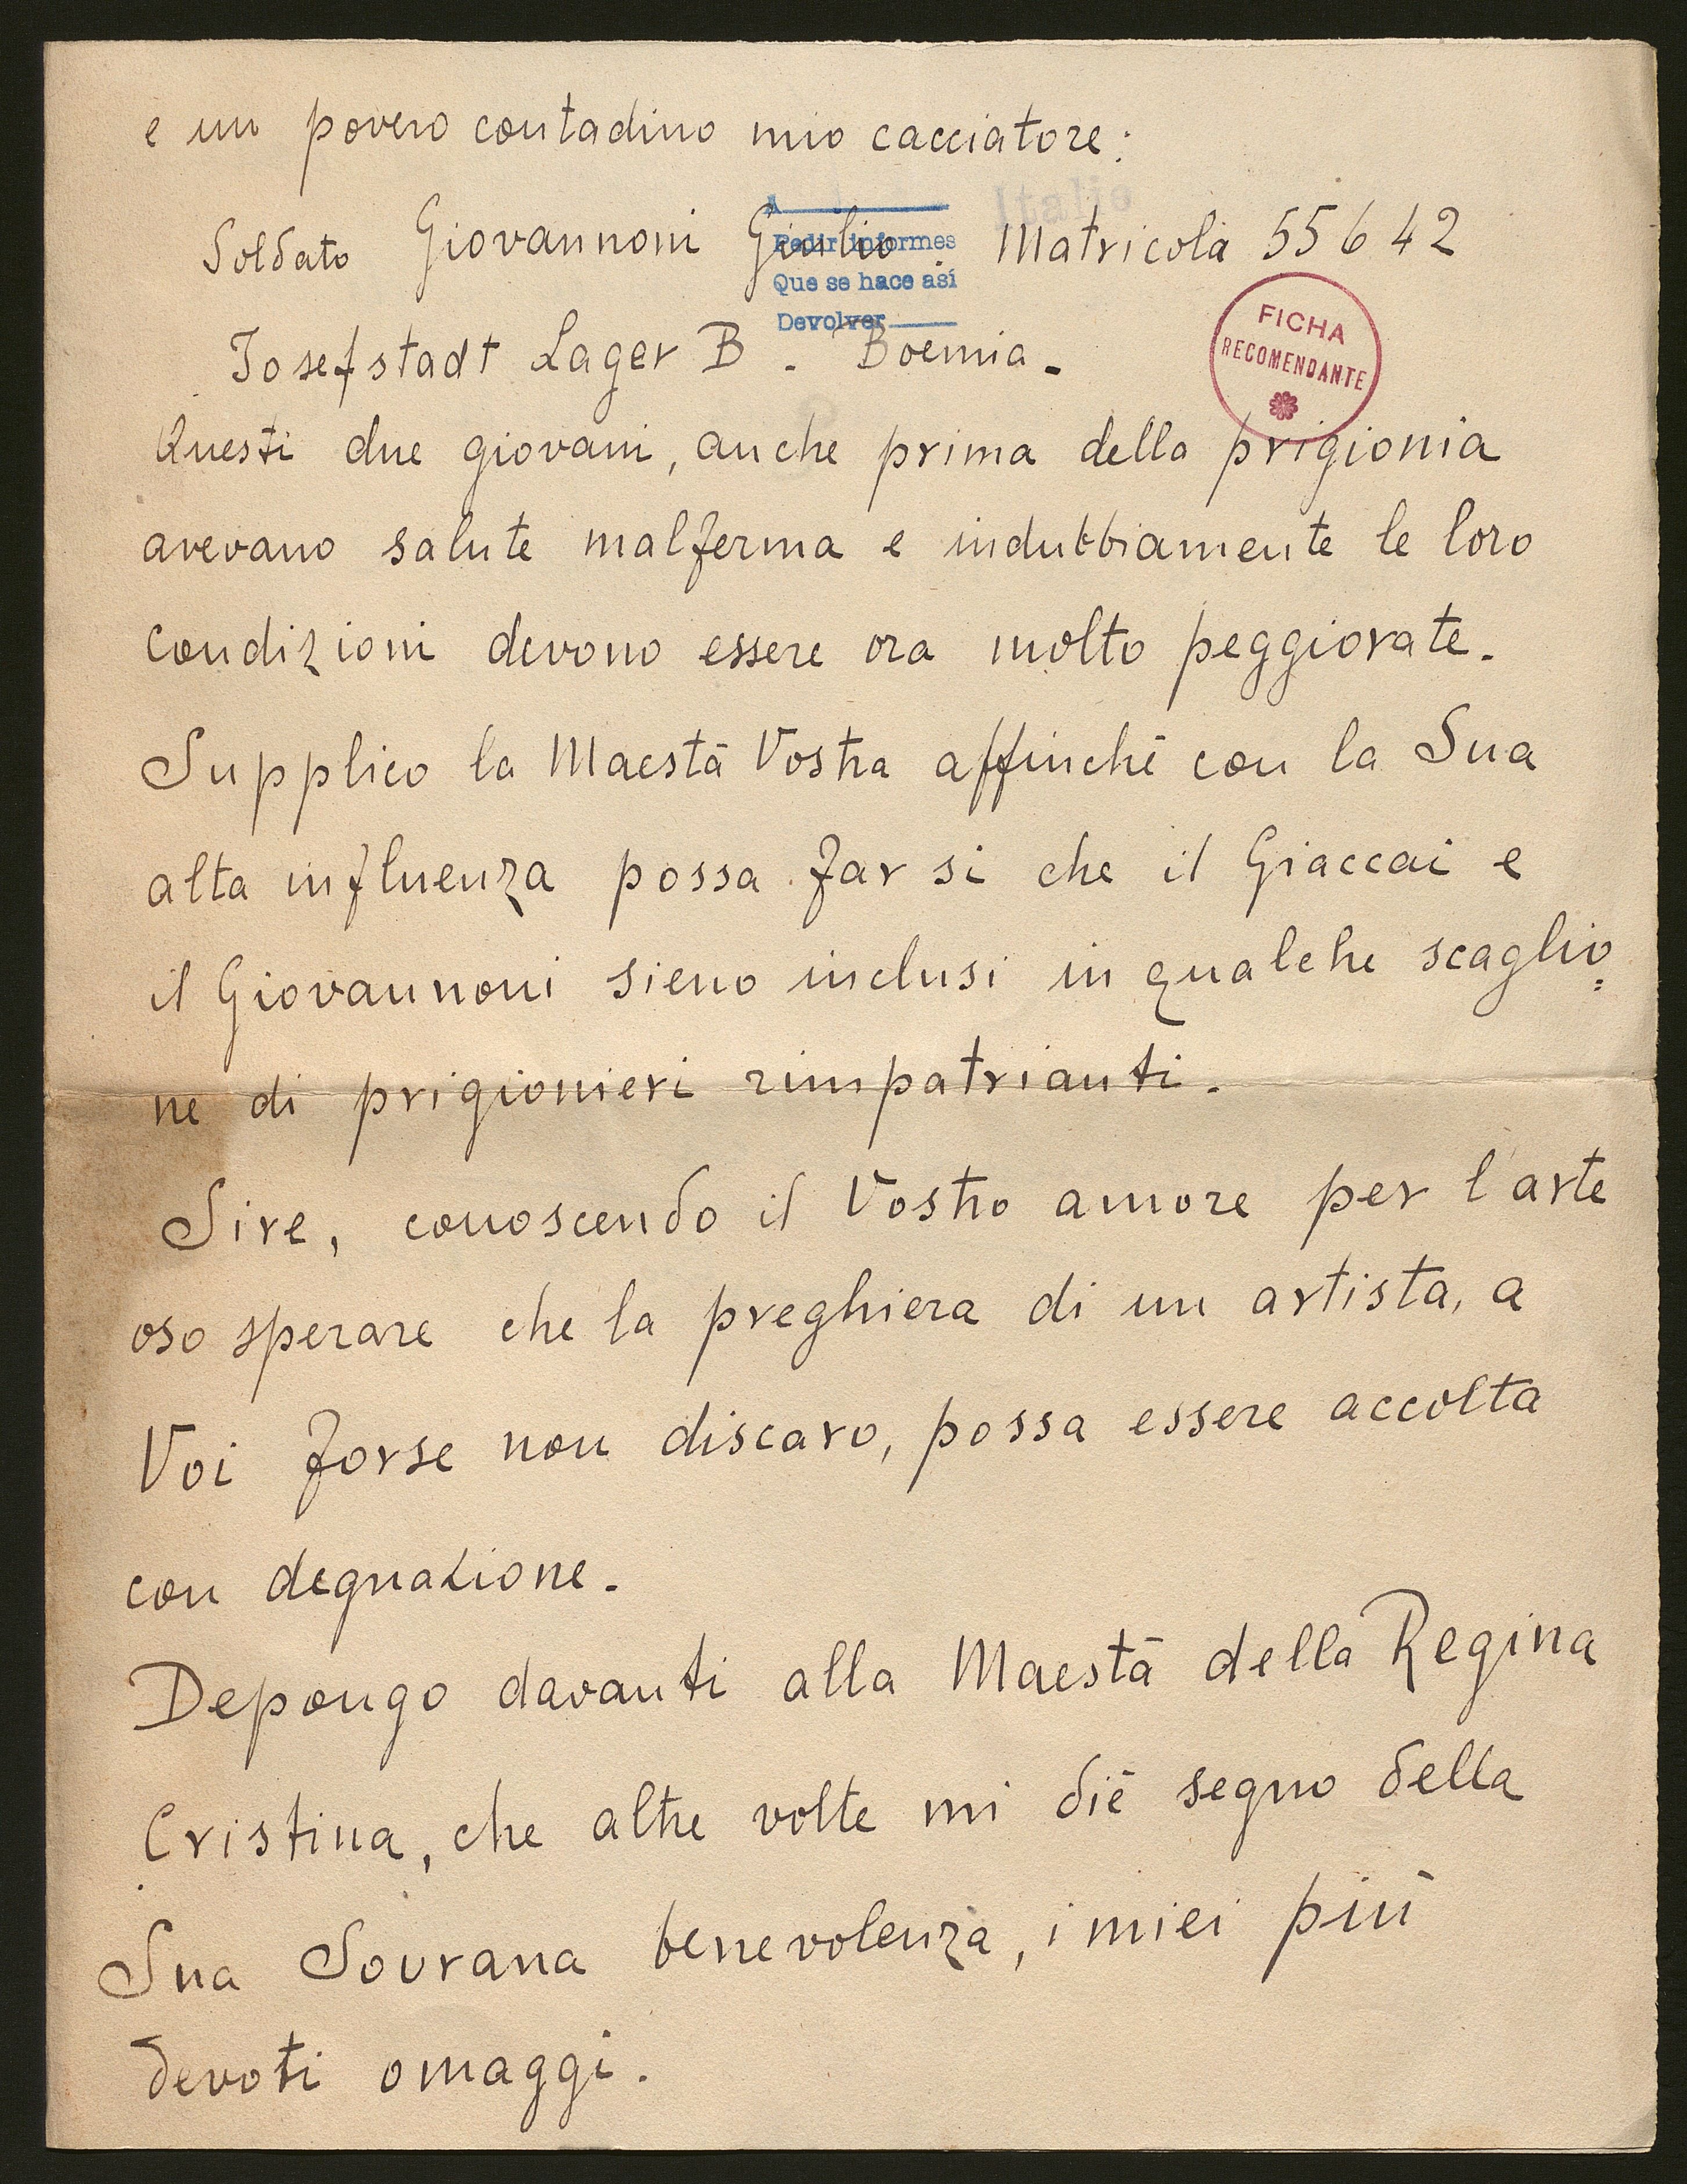 e un povero contadino mio cacciatore:
Italia
Soldato Giovannoni Giulio. Matricola 55642
A
Pedir informes
Que se hace así
Devolver
FICHA
RECOMENDANTE
Josefstadt Lager B. Boemia.
Questi due giovani, anche prima della prigionia
avevano salute malferma e indubbiamente le loro
condizioni devono essere ora molto peggiorate.
Supplico la Maestà Vostra affinchè con la Sua
alta influenza possa far si che il Giaccai e
il Giovannoni sieno inclusi in qualche scaglio=
ne di prigionieri rimpatrianti.
Sire, conoscendo il Vostro amore per l'arte
oso sperare che la preghiera di un artista, a
Voi forse non discaro, possa essere accolta
con degnazione.
Depongo davanti alla Maestà della Regina
Cristina, che altre volte mi diè segno della
Sua Sovrana benevolenza, i miei più
devoti omaggi.